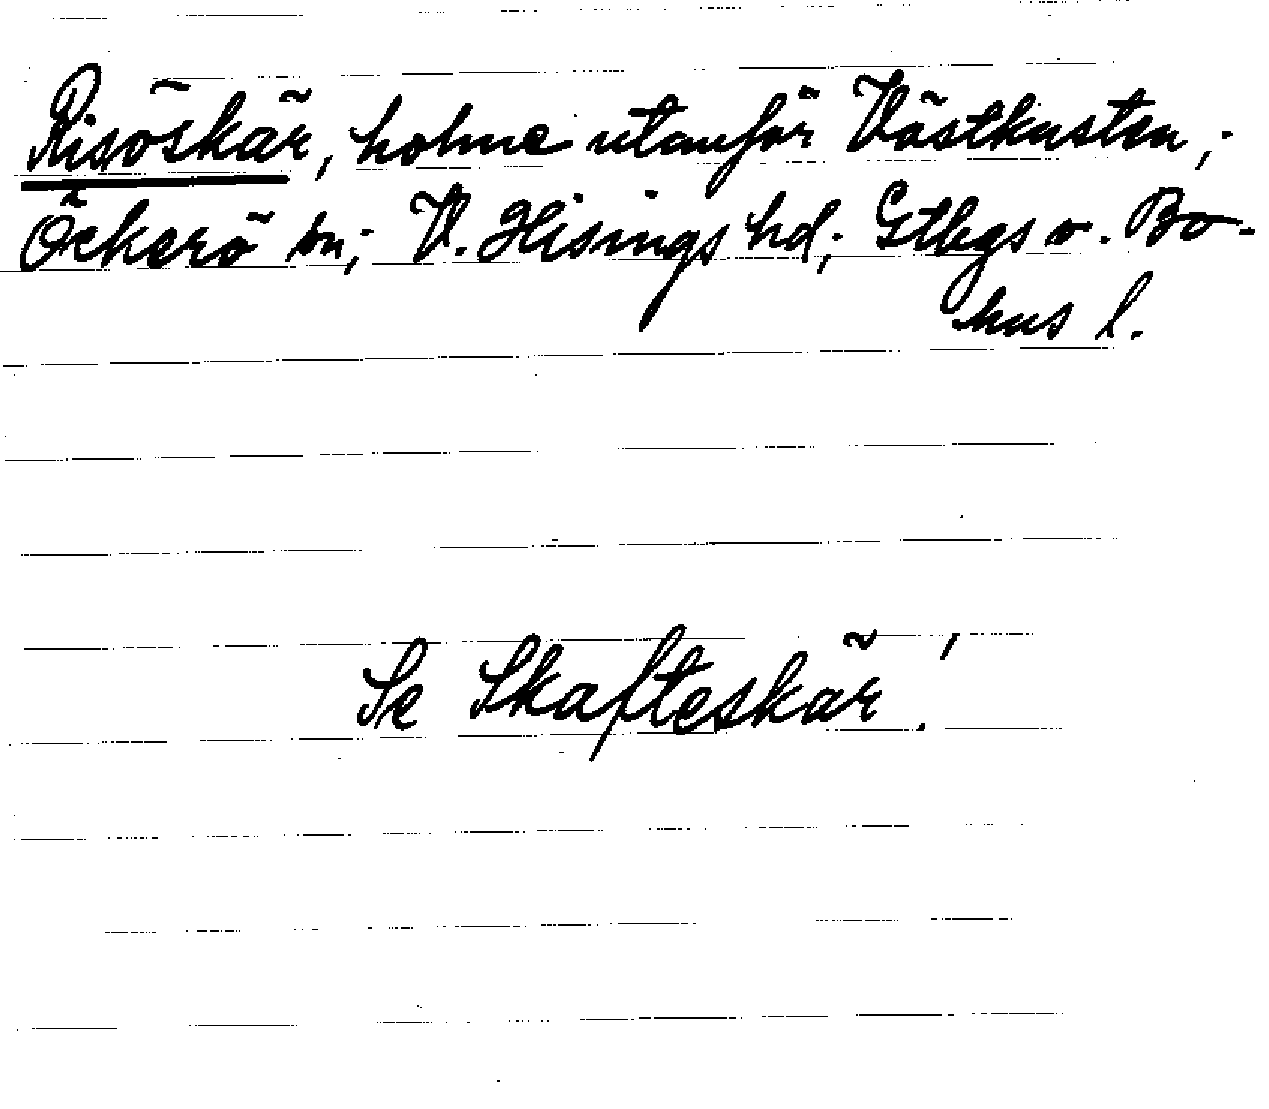 Risöskär, holme utanför Västkusten,;
Öckerö sn; V. Hisings hd; Gtbgs o. Bo-
hus l.
Se Skafteskär!